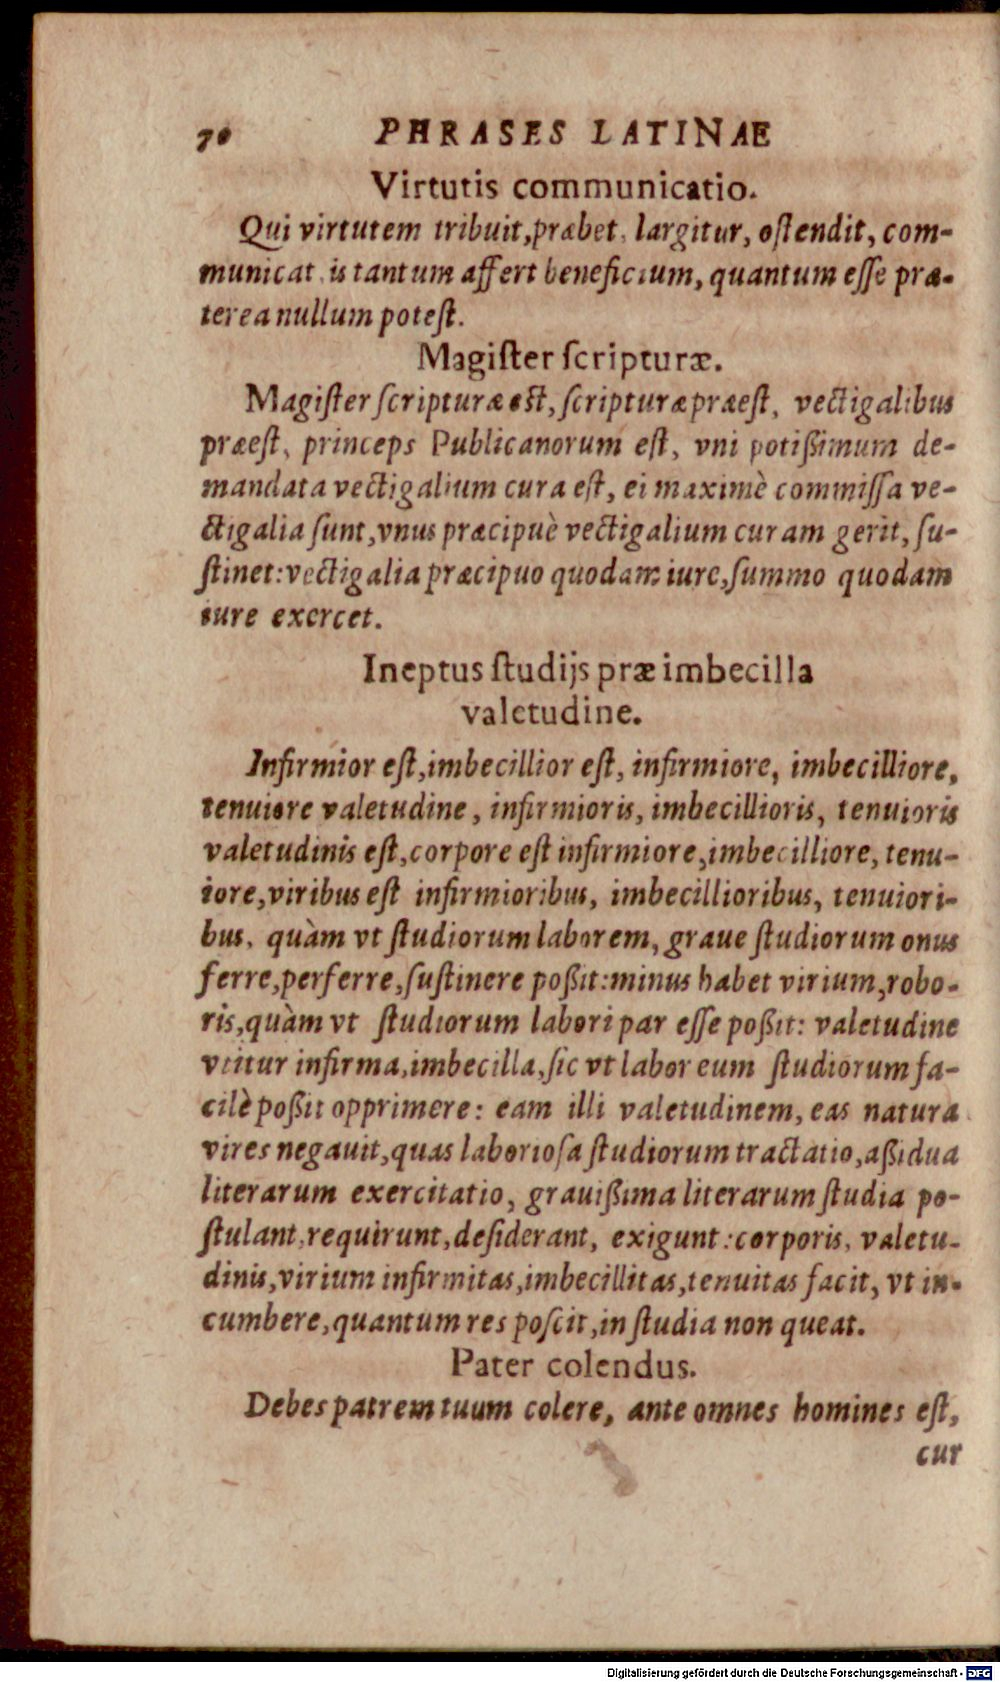 70 PHRASES LATINAE
Virtutis communicatio.
Qui virtutem tribuit, præbet, largitur, oſtendit, com-
municat, is tantum affert beneficium, quantum eſſe præ-
terea nullum poteſt.
Magiſter ſcripturæ.
Magiſter ſcripturæ eſt, ſcripturæ præeſt, vectigalibus
præeſt, princeps Publicanorum eſt, vni potißimum de-
mandata vectigalium cura eſt, ei maximè commiſſa ve-
ctigalia ſunt, vnus præcipuè vectigalium curam gerit, ſu-
ſtinet: vectigalia præcipuo quodam iure, ſummo quodam
iure exercet.
Ineptus ſtudijs præ imbecilla
valetudine.
Infirmior eſt, imbecillior eſt, infirmiore, imbecilliore,
tenuiore valetudine, infirmioris, imbecillioris, tenuioris
valetudinis eſt, corpore eſt infirmiore, imbecilliore, tenu-
iore, viribus eſt infirmioribus, imbecillioribus, tenuiori-
bus, quàm vt ſtudiorum laborem, graue ſtudiorum onus
ferre, perferre, ſuſtinere poßit: minus habet virium, robo-
ris, quàm vt ſtudiorum labori par eſſe poßit: valetudine
vtitur infirma, imbecilla, ſic vt labor eum ſtudiorum fa-
cilè poßit opprimere: eam illi valetudinem, eas natura
vires negauit, quas laborioſa ſtudiorum tractatio, aßidua
literarum exercitatio, grauißima literarum ſtudia po-
ſtulant, requirunt, deſiderant, exigunt: corporis, valetu-
dinis, virium infirmitas, imbecillitas, tenuitas facit, vt in-
cumbere, quantum res poſcit, in ſtudia non queat.
Pater colendus.
Debes patrem tuum colere, ante omnes homines eſt,
cur
Digitalisierung gefördert durch die Deutsche Forschungsgemeinschaft - DFG